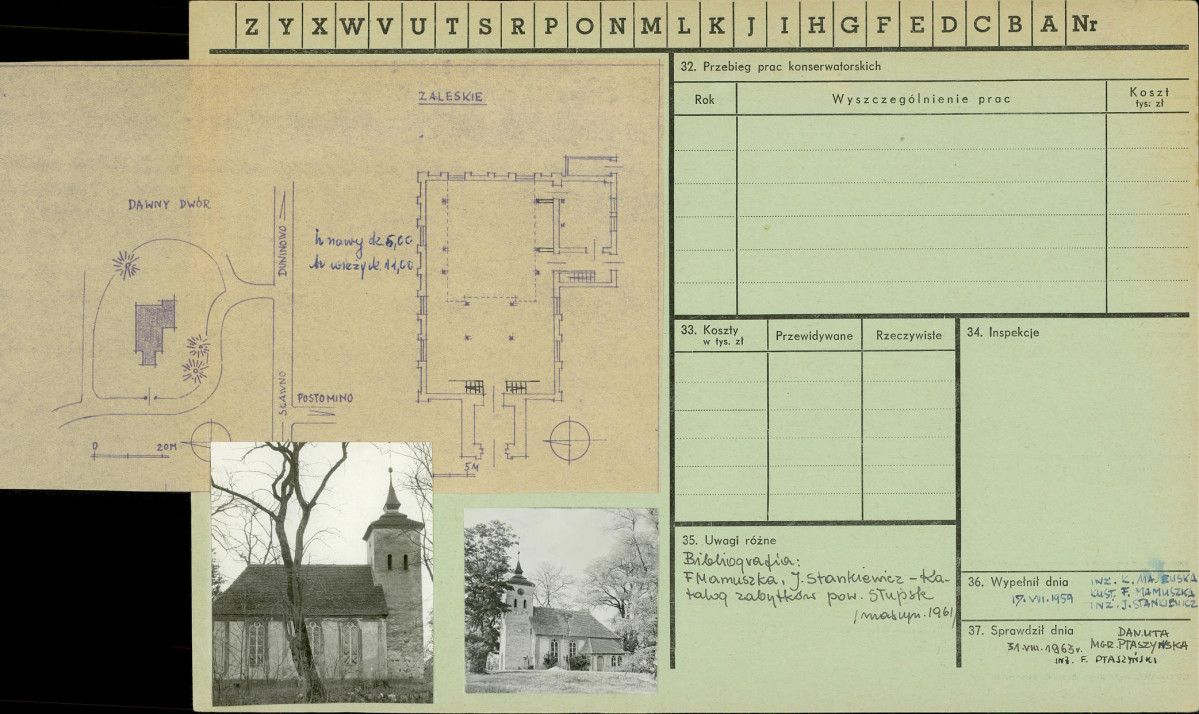 Z Y X W V U T S R P O N M L K J I H G F E D C B A Nr
ZALESKIE
DAWNY DWÓR
DUNINOWO
h nawy ok. 5,00
h wieży ok. 11,00
SŁAWNO
POSTOMINO
0 20M
5M
32. Przebieg prac konserwatorskich
Rok
Wyszczególnienie prac
Koszt
tys. zł
33. Koszty
w tys. zł
Przewidywane
Rzeczywiste
34. Inspekcje
35. Uwagi różne
Bibliografia:
F Mamuszka, J. Stankiewicz – Ka-
talog zabytków pow. Słupsk
/maszyn. 1961/
36. Wypełnił dnia
17.VII.1959
INŻ. K. MAJEWSKA
KUST. F. MAMUSZKA
INŻ. J. STANKIEWICZ
37. Sprawdził dnia
31.VIII.1963r.
DANUTA
MGR. PTASZYŃSKA
INŻ. F. PTASZYŃSKI